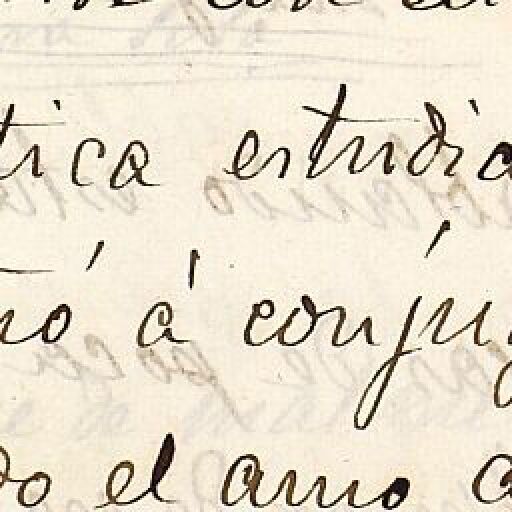 tica estudia
ó á conju
do el amo a